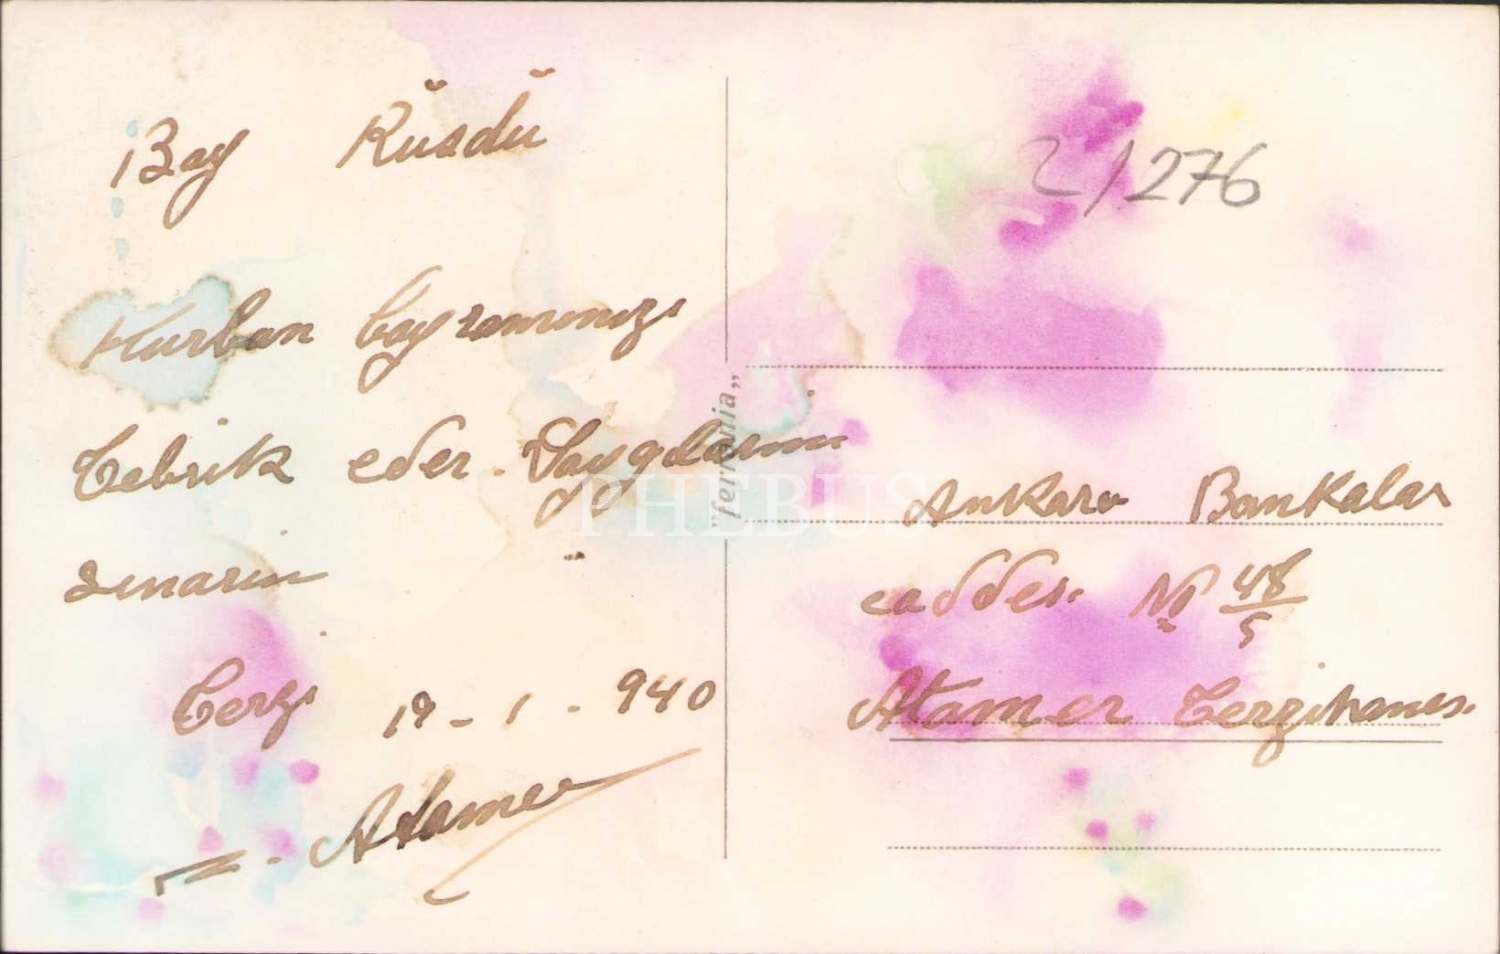 Bay Rüsdü
Kurban bayramınızı
Tebrik eder. Saygılarımı
sunarım
Terzi 19-1-940
Atamer
2/276
"ferrania"
Ankara Bankalar
caddesi No 48/5
Atamer Terzihanesi
PHEBUS